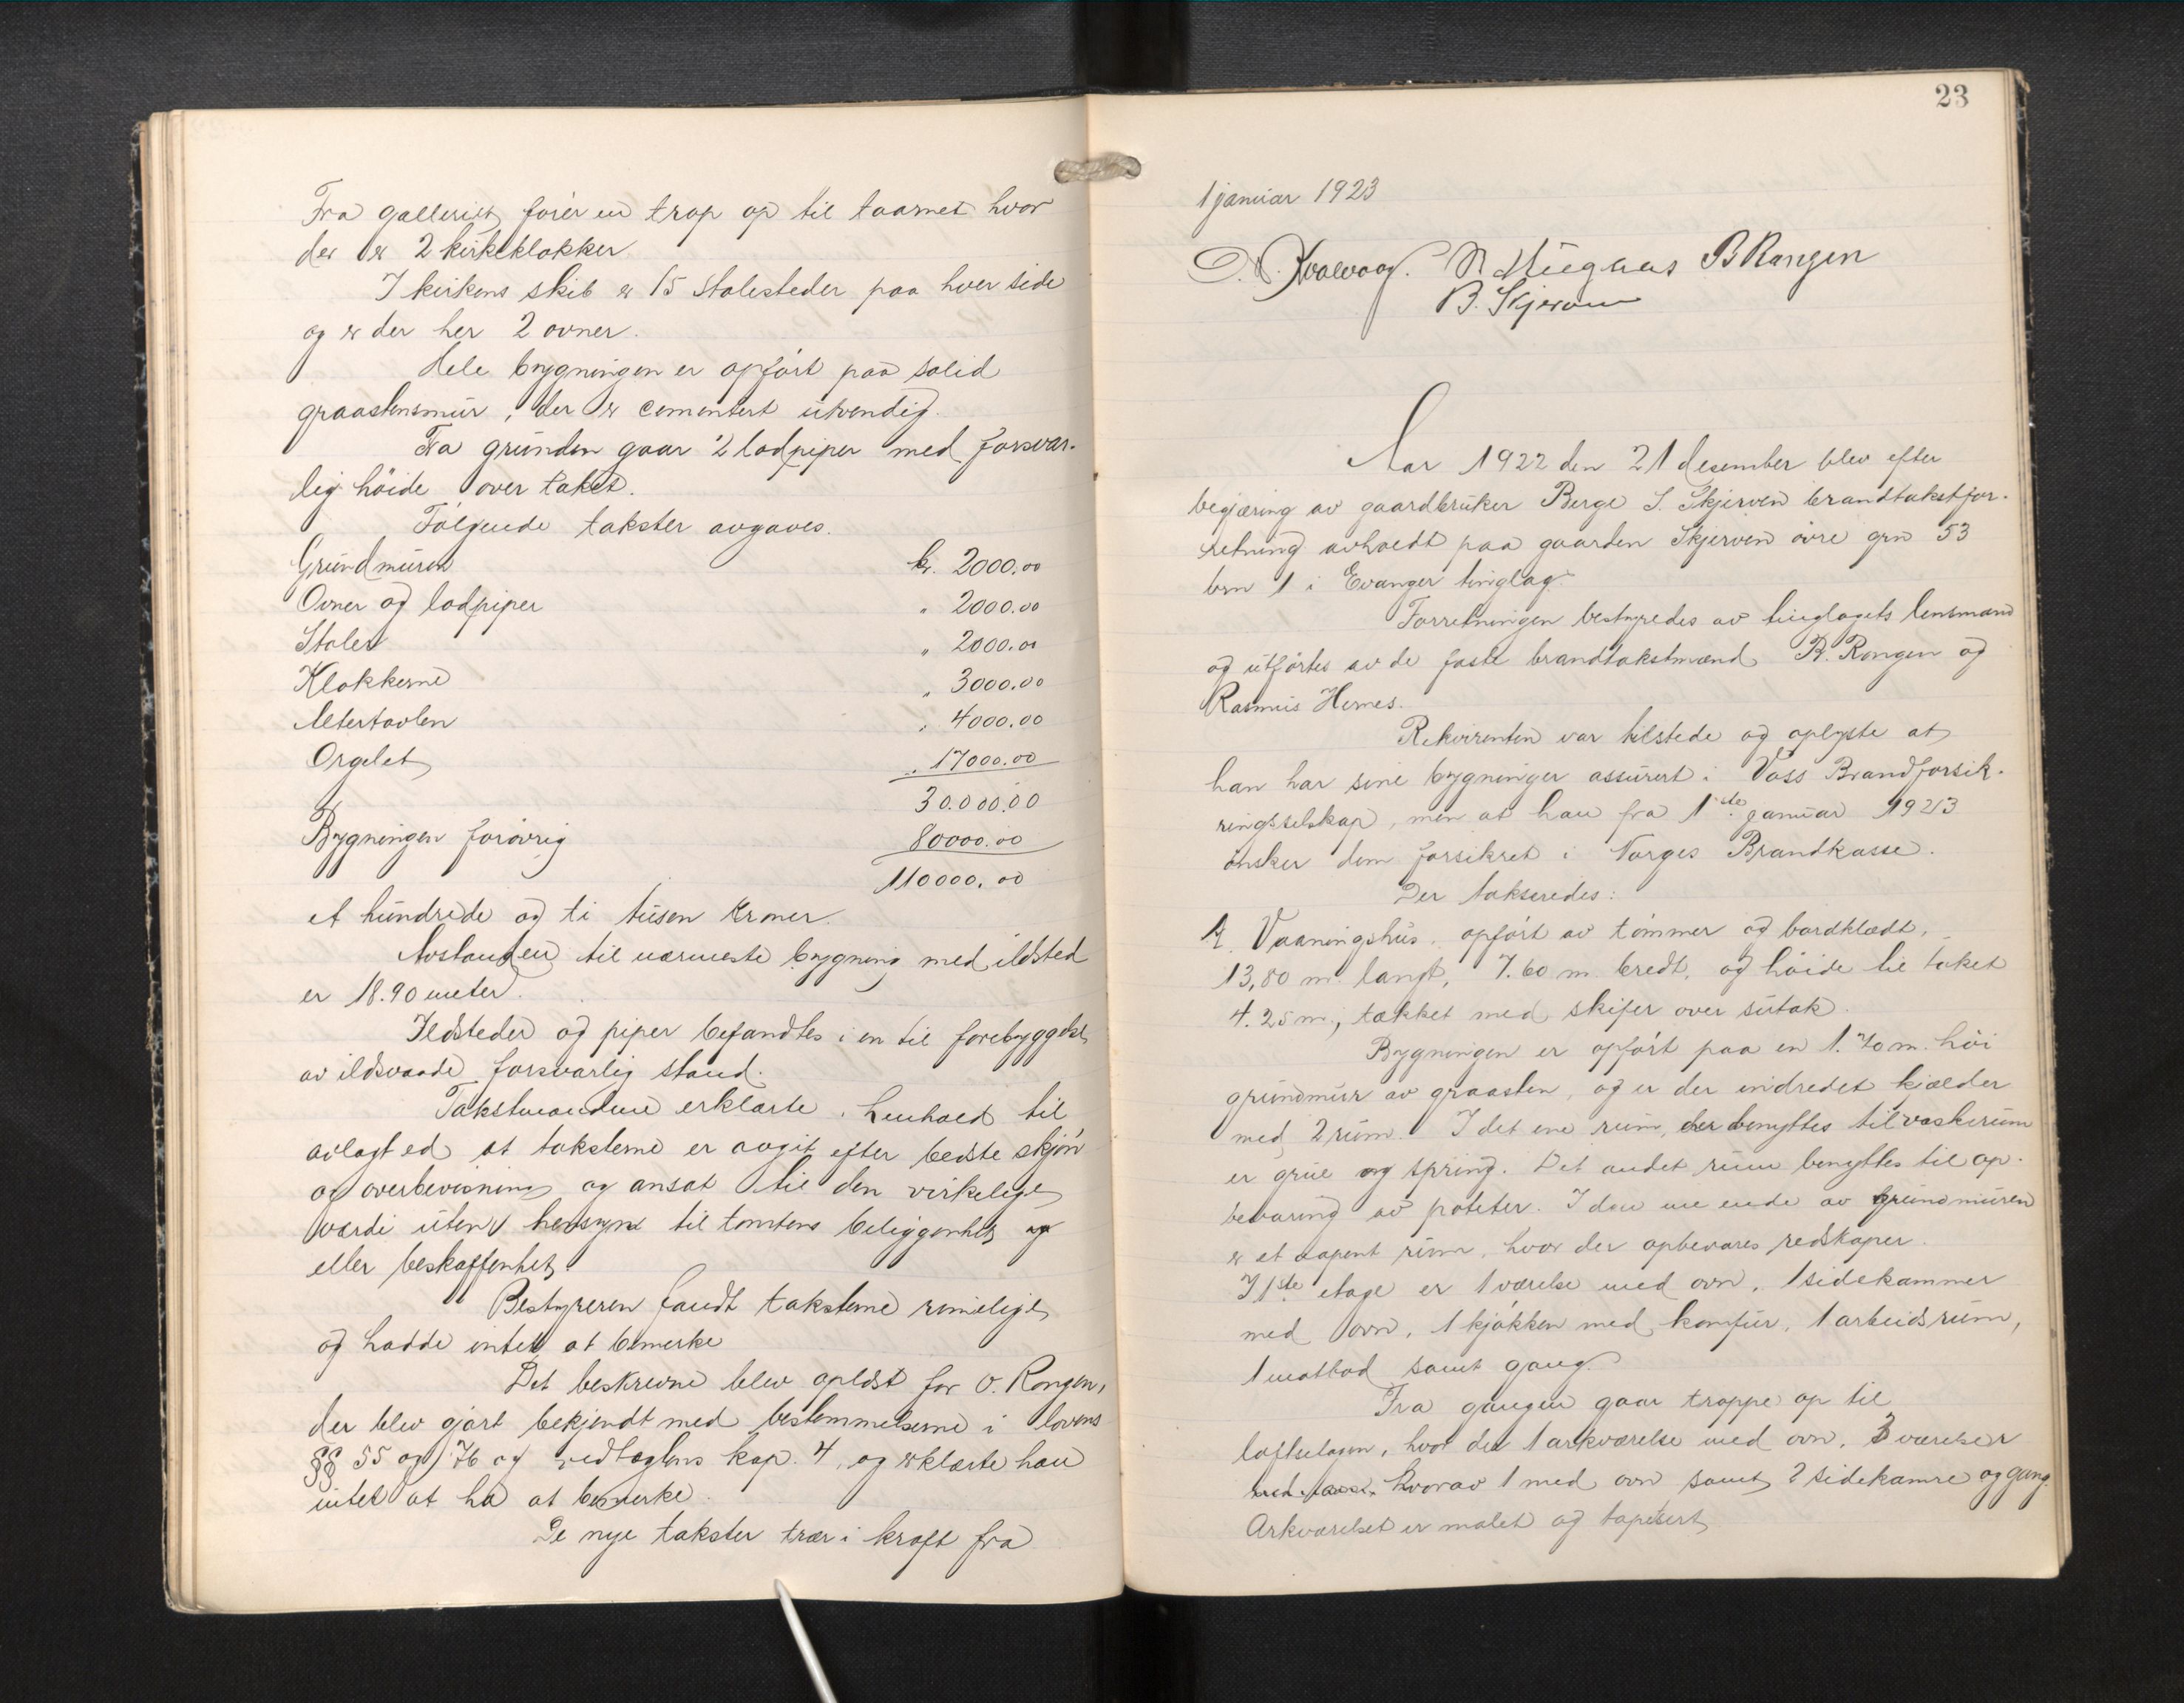 Fra galleriet fører en trap op til taarnet hvor
der er 2 kirkeklokker
I kirkens skib er 15 stolesteder paa hver side
og er der her 2 ovner.
Hele bygningen er opført paa solid
graastensmur, der er cementert utvendig.
Fra grunden gaar 2 lodpiper med forsvar-
lig høide over taket.
Følgende takster avgaves.
Grundmuren kr. 2000.00
Ovner og lodpiper " 2000.00
Stoler " 2000.00
Klokkerne " 3000.00
Altertavlen " 4000.00
Orgelet " 17000.00
30.000.00
Bygningen forøvrig 80000.00
110000.00
et hundrede og ti tusen kroner.
Avstanden til nærmeste bygning med ildsted
er 18.90 meter.
Ildsteder og piper befandtes i en til forebyggelse
av ildsvaade forsvarlig stand.
Takstmændene erklærte i henhold til
avlagt ed at taksterne er avgit efter bedste skjøn
og overbevisning og ansat til den virkelige
værdi uten hensyn til tomtens beliggenhet og
eller beskaffenhet.
Bestyreren fandt taksterne rimelige
og hadde intet at bemerke
Det beskrevne blev oplæst for O. Rongen,
der blev gjort bekjendt med bestemmelserne i lovens
§§ 55 og 76 og vedtægtens kap. 4, og erklærte han
intet at ha at bemerke.
De nye takster trær i kraft fra
23
1 januar 1923
Kvalvaag. B Rongen
B. Skjerven
Aar 1922 den 21 desember blev efter
begjæring av gaardbruker Berge S. Skjerven brandtakstfor-
retning avholdt paa gaarden Skjerven øvre grn 53
brn 1 i Evanger tinglag.
Forretningen bestyredes av tinglagets lensmand
og utførtes av de faste brandtakstmænd B. Rongen og
Rasmus Hernes.
Rekvirenten var tilstede og oplyste at
han har sine bygninger assurert i Voss Brandforsik-
ringsselskap, men at han fra 1ste januar 1923
ønsker dem forsikret i Norges Brandkasse.
Der takseredes:
1. Vaaningshus, opført av tømmer og bordklædt,
13,80 m. langt, 7.60 m. bredt, og høide til taket
4.25 m., tækket med skifer over sutak.
Bygningen er opført paa en 1.70 m. høi
grundmur av graasten, og er der indredet kjælder
med 2 rum. I det ene rum, der benyttes til vaskerum
er grue og spring. Det andet rum benyttes til op-
bevaring av poteter. I den ene ende av grundmuren
er et aapent rum, hvor der opbevares redskaper.
I 1ste etage er 1 værelse med ovn, 1 sidekammer
med ovn, 1 kjøkken med komfur, 1 arbeidsrum,
1 matbod samt gang.
Fra gangen gaar trappe op til
loftsetagen, hvor der 1 arkværelse med ovn, 3 værelser
hvorav 1 med ovn samt 2 sidekamre og gang.
Arkværelset er malet og tapetsert